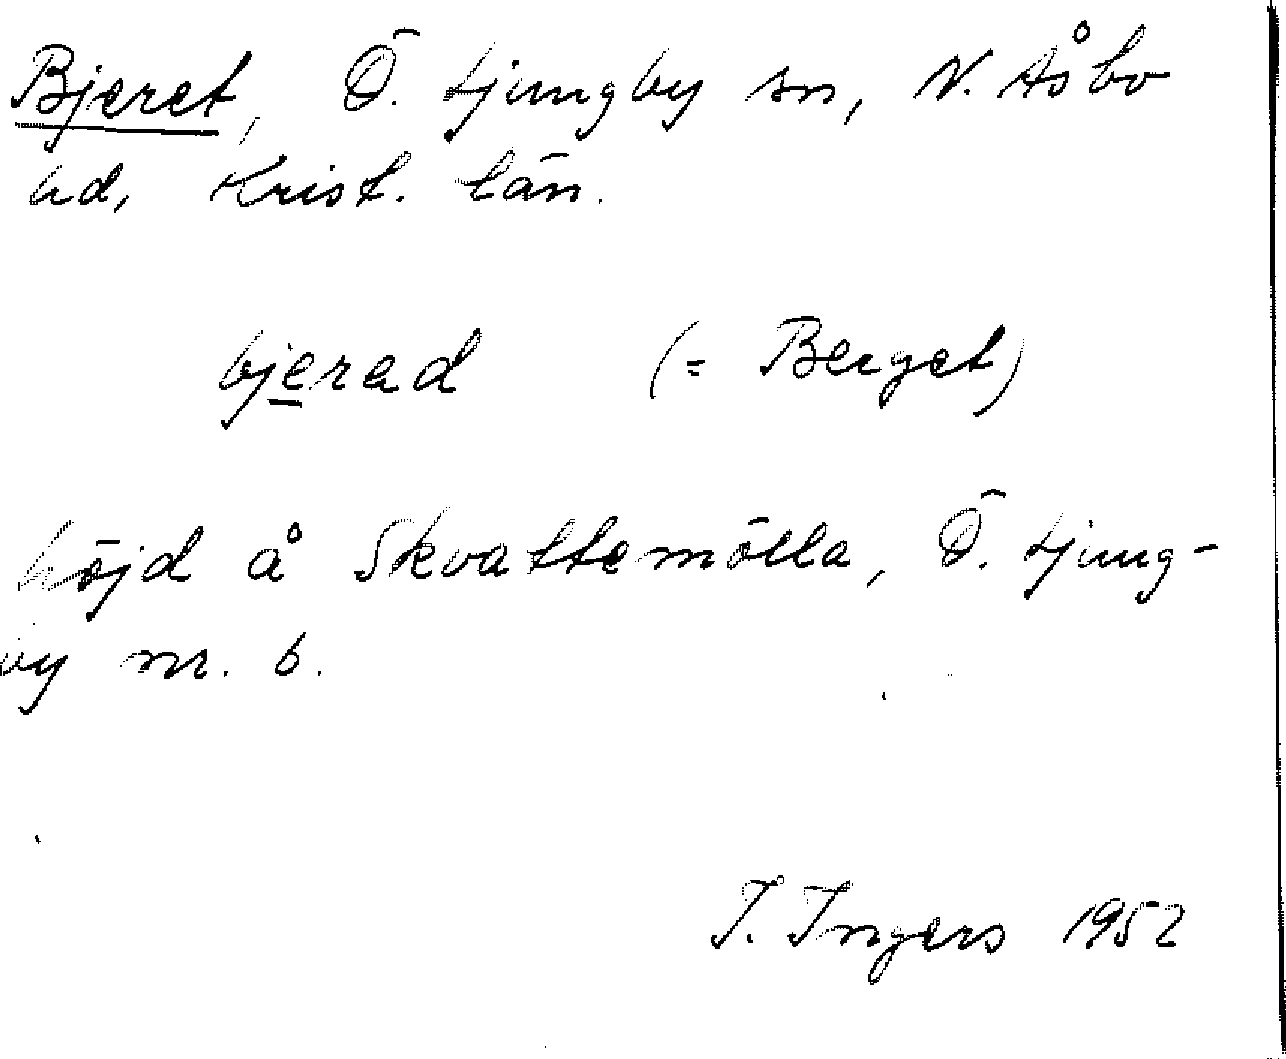 Bjeret, Ö. Ljungby sn, N. Åsbo
hd, Krist. län.
bjerad (= Berget)
höjd å Skvattemölla, Ö. Ljung-
by nr. 6.
I. Ingers 1952